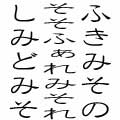 ふきみその
そそふあれみそれ
しみどみそ